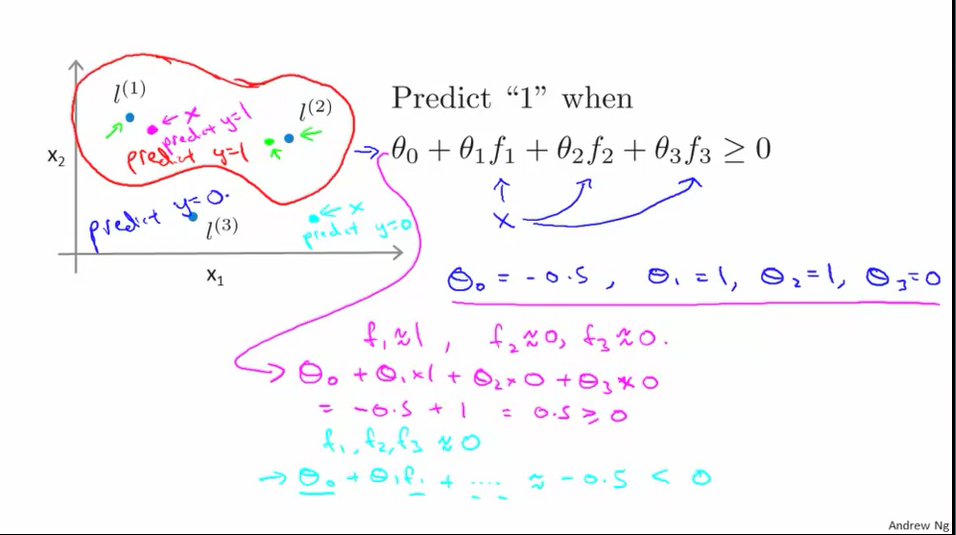 l⁽¹⁾
l⁽²⁾
← x
predict y=1
predict y=1
x₂
predict y=0.
l⁽³⁾
← x
predict y=0
x₁
Predict “1” when
→ θ₀ + θ₁f₁ + θ₂f₂ + θ₃f₃ ≥ 0
x
θ₀ = -0.5, θ₁=1, θ₂=1, θ₃=0
f₁≈1, f₂≈0, f₃≈0.
θ₀ + θ₁×1 + θ₂×0 + θ₃×0
= -0.5 + 1 = 0.5 ≥ 0
f₁, f₂, f₃ ≈ 0
→ θ₀ + θ₁f₁ + .... ≈ -0.5 < 0
Andrew Ng